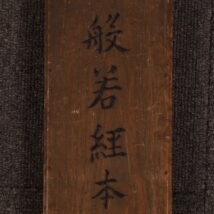 般若経本